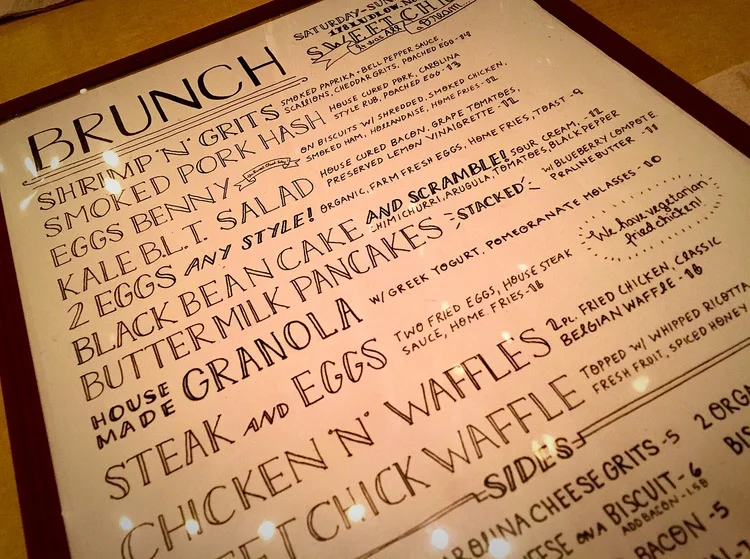 BRUNCH
SATURDAY-SUN
178 LUDLOW, N
SWEET CHI
SHRIMP 'N' GRITS SMOKED PAPRIKA + BELL PEPPER SAUCE,
SCALLIONS, CHEDDAR GRITS, POACHED EGG -14
SMOKED PORK HASH HOUSE CURED PORK, CAROLINA
STYLE RUB, POACHED EGG -13
EGGS BENNY ON BISCUITS W/ SHREDDED, SMOKED CHICKEN,
SMOKED HAM, HOLLANDAISE, HOME FRIES -12
KALE B.L.T. SALAD HOUSE CURED BACON, GRAPE TOMATOES,
PRESERVED LEMON VINAIGRETTE -12
2 EGGS ANY STYLE! ORGANIC, FARM FRESH EGGS, HOME FRIES, TOAST -9
BLACK BEAN CAKE AND SCRAMBLE! SOUR CREAM, -12
CHIMICHURRI, ARUGULA, TOMATOES, BLACK PEPPER
BUTTER MILK PANCAKES STACKED W/ BLUEBERRY COMPOTE
PRALINE BUTTER -11
HOUSE MADE GRANOLA W/ GREEK YOGURT, POMEGRANATE MOLASSES -10
We have vegetarian
fried chicken!
STEAK AND EGGS TWO FRIED EGGS, HOUSE STEAK
SAUCE, HOME FRIES -18
CHICKEN 'N' WAFFLES 2 PC. FRIED CHICKEN, CLASSIC
BELGIAN WAFFLE -16
EET CHICK WAFFLE TOPPED W/ WHIPPED RICOTTA
FRESH FRUIT, SPICED HONEY
SIDES
ROLINA CHEESE GRITS -5
2 ORG
EESE ON A BISCUIT -6
ADD BACON -1.50
BIS
BACON -5